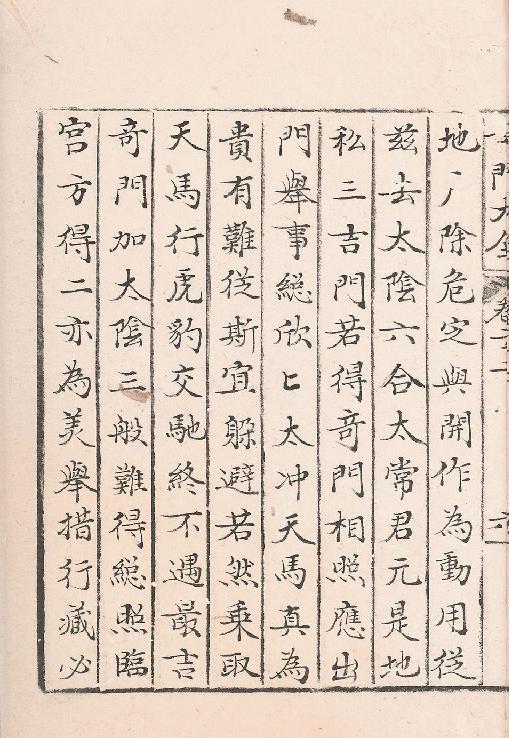 門大全 卷
地除危定與開作為動用從
茲去太陰六合太常君元是地
私三吉門若得奇門相照應出
門舉事縂欣匕太冲天馬真為
貴有難從斯宜躲避若然乘取
天馬行虎豹交馳終不遇最吉
奇門加太陰三般難得縂照臨
宮方得二亦為美舉措行藏必